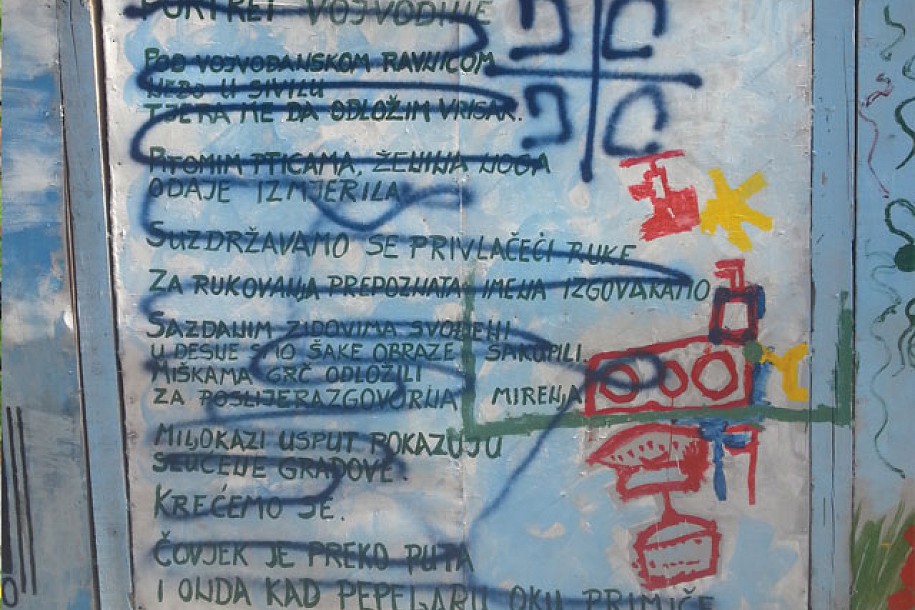 PORTRET VOJVODINE
POD VOJVOĐANSKOM RAVNICOM
NEBO U SIVILU
TJERA ME DA ODLOŽIM VRISAK.
PITOMIM PTICAMA, ŽENINA NOGA
ODAJE IZMJERILA
SUZDRŽAVAMO SE PRIVLAČEĆI RUKE
ZA RUKOVANJA PREPOZNATA IMENA IZGOVARAMO
SAZDANIM ZIDOVIMA SVOĐENI
U DESNE SMO ŠAKE OBRAZE SAKUPILI.
MIŠKAMA GRČ ODLOŽILI
ZA POSLIJERAZGOVORNA MIRENJA
MILJOKAZI USPUT POKAZUJU
GRADOVE.
KREĆEMO SE.
ČOVJEK JE PREKO PUTA
I ONDA KAD OKU PRIMIČE